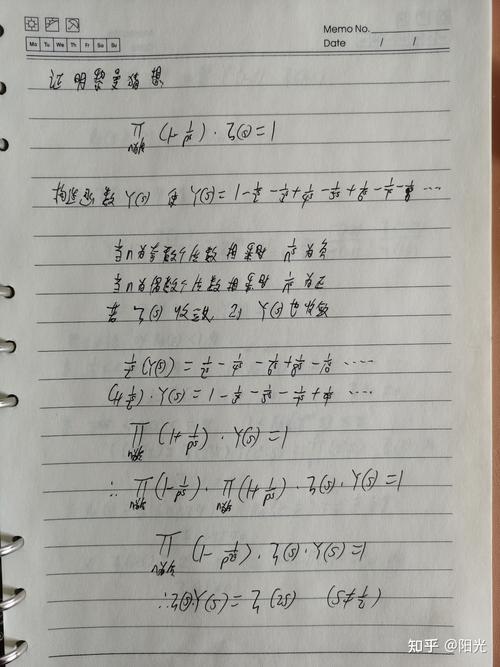 Memo No.
Mo Tu We Th Fr Sa Su
Date / /
证明黎曼猜想
∏ (1-1/p^s)·ζ(s)=1
构造函数 Y(s) 使 Y(s)=1-1/2^s-1/3^s+1/4^s-1/5^s+1/6^s-1/7^s-1/8^s ...
当n为奇数个质数相乘时 1/n^s 为负
当n为偶数个质数相乘时 1/n^s 为正
若 ζ(s) 收敛 则 Y(s)也收敛
1/2^s(Y(s)) = 1/2^s - 1/4^s - 1/6^s + 1/8^s - 1/10^s ......
(1+1/2^s)·Y(s)=1-1/3^s-1/5^s-1/7^s+1/9^s ....
∏ (1+1/p^s)·Y(s)=1
∴ ∏(1-1/p^s)·∏(1+1/p^s)·ζ(s)·Y(s)=1
∏ (1-1/p^2s)·ζ(s)·Y(s)=1
∴ζ(s)·Y(s)=ζ(2s) (s≠1/2)
知乎 @阳光